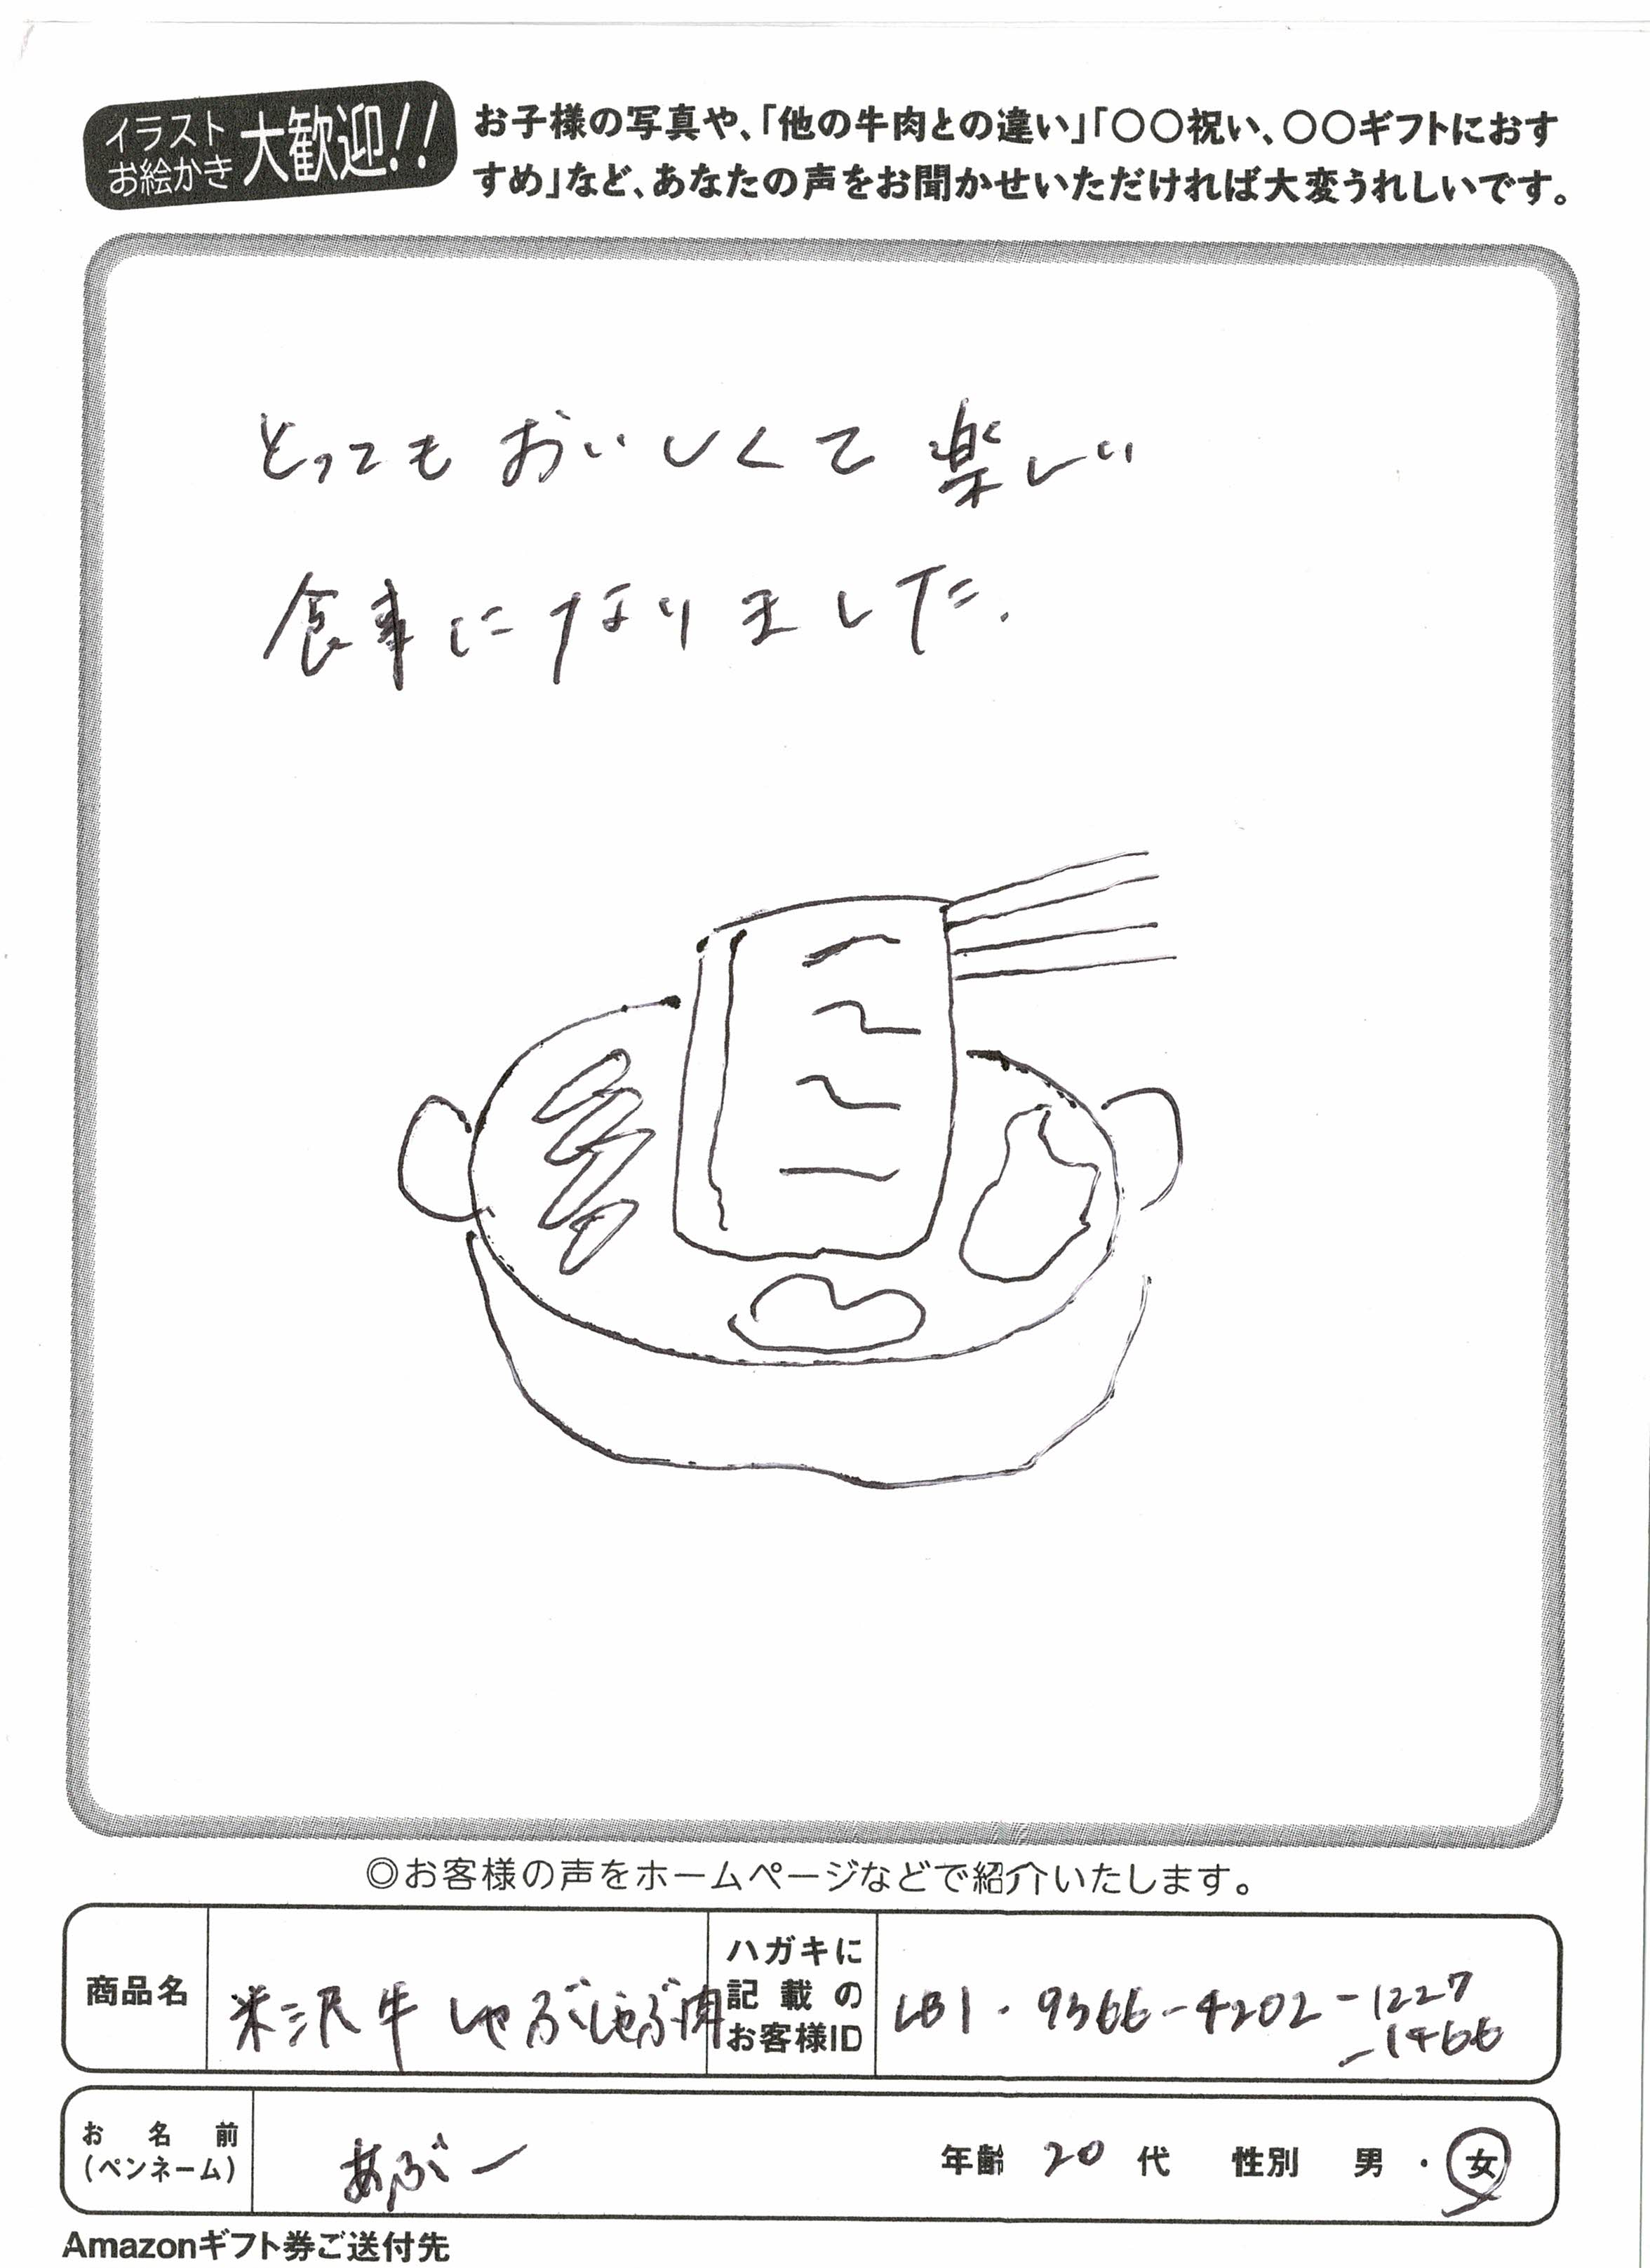 イラスト
お絵かき
大歓迎!!
お子様の写真や、「他の牛肉との違い」「〇〇祝い、〇〇ギフトにおす
すめ」など、あなたの声をお聞かせいただければ大変うれしいです。
とってもおいしくて楽しい
食事になりました.
◎お客様の声をホームページなどで紹介いたします。
商品名
米沢牛 しゃぶしゃぶ肉
ハガキに
記載の
お客様ID
LB1・9366-4202-1227
-1466
お名前
(ペンネーム)
あぶー
年齢 20 代 性別 男・女
Amazonギフト券ご送付先